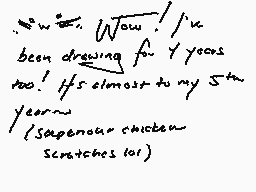 =^w^= Wow! I've
been drawing for 4 years
too! It's almost to my 5th
year~
(super chicken
scratches lol)